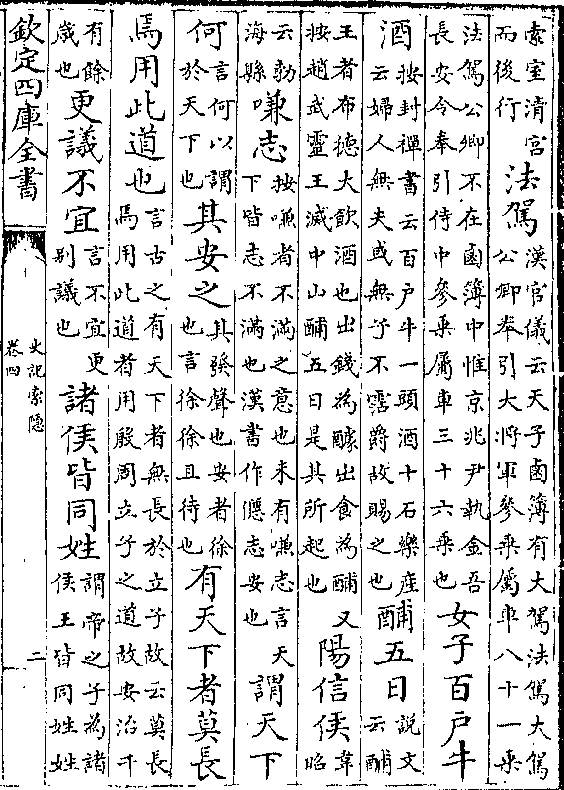 索室清宮而後行法駕漢官儀云天子鹵簿有大駕法駕大駕公卿奉引大將軍參乘屬車八十一乘
法駕公卿不在鹵簿中惟京兆尹執金吾長安令奉引侍中參乘屬車三十六乘也女子百戶牛
酒按封禪書云百戶牛一頭酒十石樂產云婦人無夫或無子不霑爵故賜之也酺五日說文云酺
王者布德大飲酒也出錢為醵出食為酺又按趙武靈王滅中山酺五日是其所起也陽信侯韋昭
云勃海縣嗛志按嗛者不滿之意也未有嗛志言天下皆志不滿也漢書作㥦志安也謂天下
何言何以謂於天下也其安之其發聲也安者徐也言徐徐且待也有天下者莫長
焉用此道也言古之有天下者無長於立子故云莫長焉用此道者用殷周立子之道故安治千
有餘歲也更議不宜言不宜更别議也諸侯皆同姓謂帝之子為諸侯王皆同姓姓
欽定四庫全書
史記索隱
卷四
二